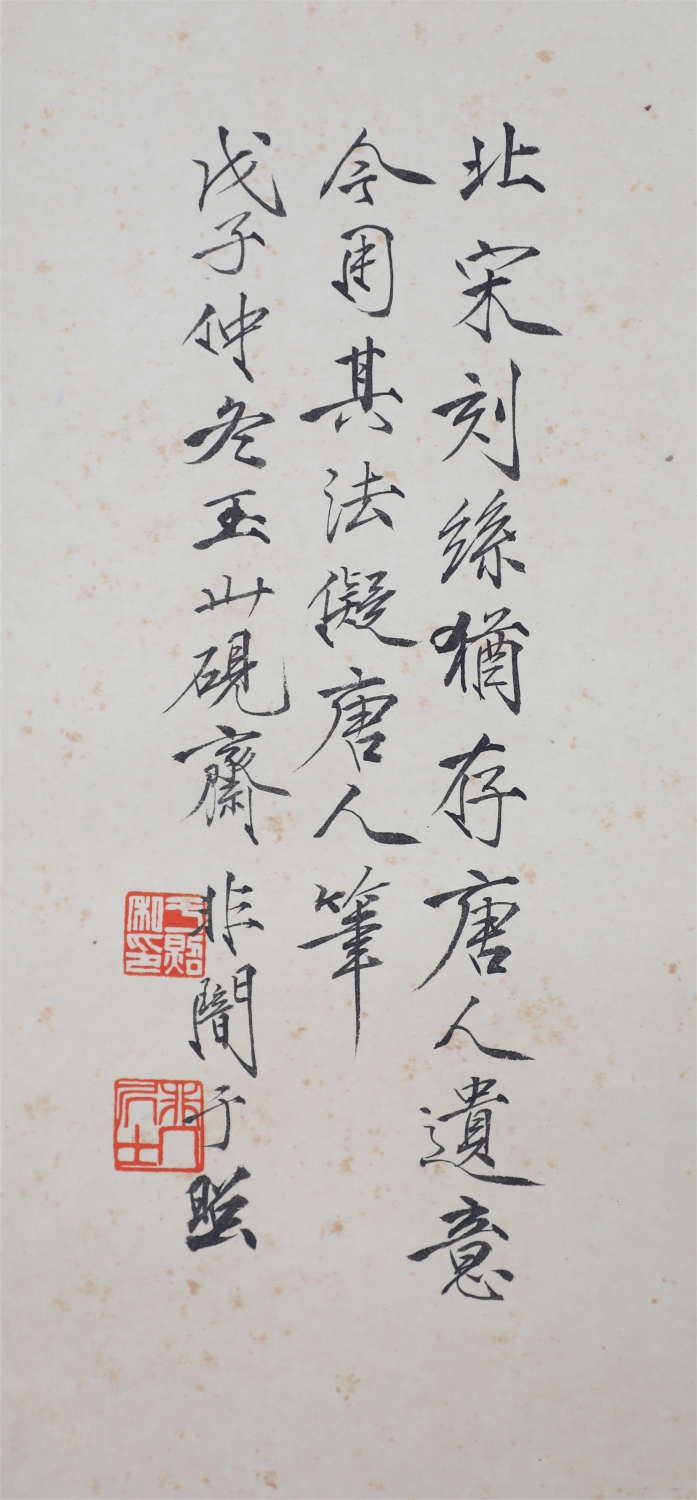 北宋刻絲猶存唐人遺意
今用其法儗唐人筆
戊子仲冬玉山硯齋非闇于照
于照私印